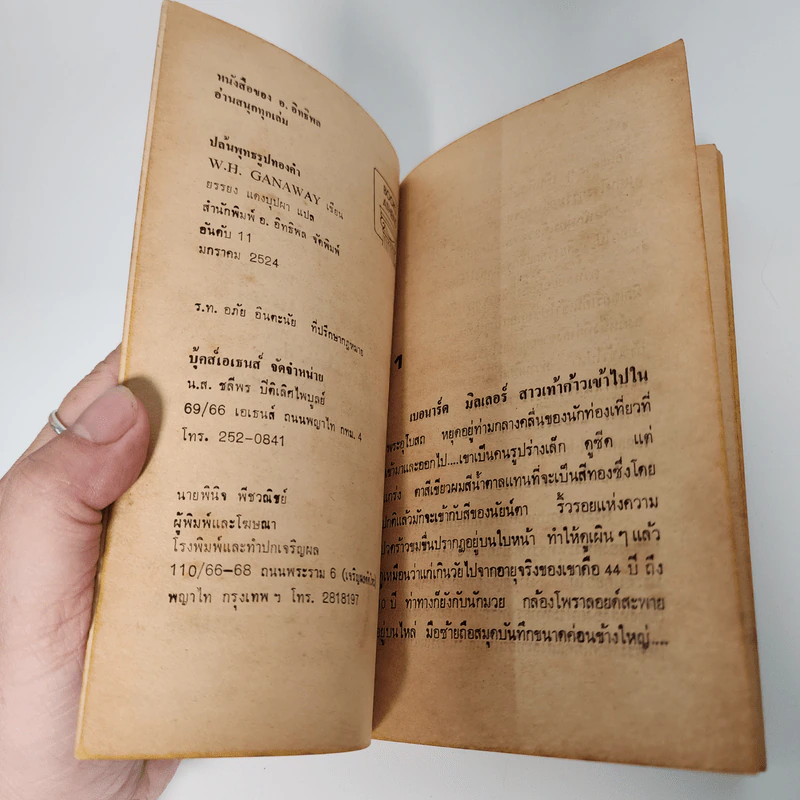 หนังสือของ อ. อิทธิพล
อ่านสนุกทุกเล่ม
ปล้นพุทธรูปทองคำ
W.H. GANAWAY เขียน
ยรรยง แดงบุปผา แปล
สำนักพิมพ์ อ. อิทธิพล จัดพิมพ์
อันดับ 11
มกราคม 2524
ร.ท. อภัย อินตะนัย ที่ปรึกษากฎหมาย
บุ้คส์เอเธนส์ จัดจำหน่าย
น.ส. ชลีพร ปิติเลิศไพบูลย์
69/66 เอเธนส์ ถนนพญาไท กทม. 4
โทร. 252-0841
นายพินิจ พีชวณิชย์
ผู้พิมพ์และโฆษณา
โรงพิมพ์และทำปกเจริญผล
110/66-68 ถนนพระราม 6
พญาไท กรุงเทพ ฯ โทร. 2818197
1
เบอนาร์ด มิลเลอร์ สาวเท้าก้าวเข้าไปใน
พระอุโบสถ หยุดอยู่ท่ามกลางคลื่นของนักท่องเที่ยวที่
เข้ามาและออกไป....เขาเป็นคนรูปร่างเล็ก ดูซีด แต่
แกร่ง ตาสีเขียวผมสีน้ำตาลแทนที่จะเป็นสีทองซึ่งโดย
ปกติแล้วมักจะเข้ากับสีของนัยน์ตา ริ้วรอยแห่งความ
ปวดร้าวขมขื่นปรากฏอยู่บนใบหน้า ทำให้ดูเผิน ๆ แล้ว
เหมือนว่าแก่เกินวัยไปจากอายุจริงของเขาคือ 44 ปี ถึง
ปี ท่าทางก็ยังกับนักมวย กล้องโพราลอยด์สะพาย
อยู่บนไหล่ มือซ้ายถือสมุดบันทึกขนาดค่อนข้างใหญ่....